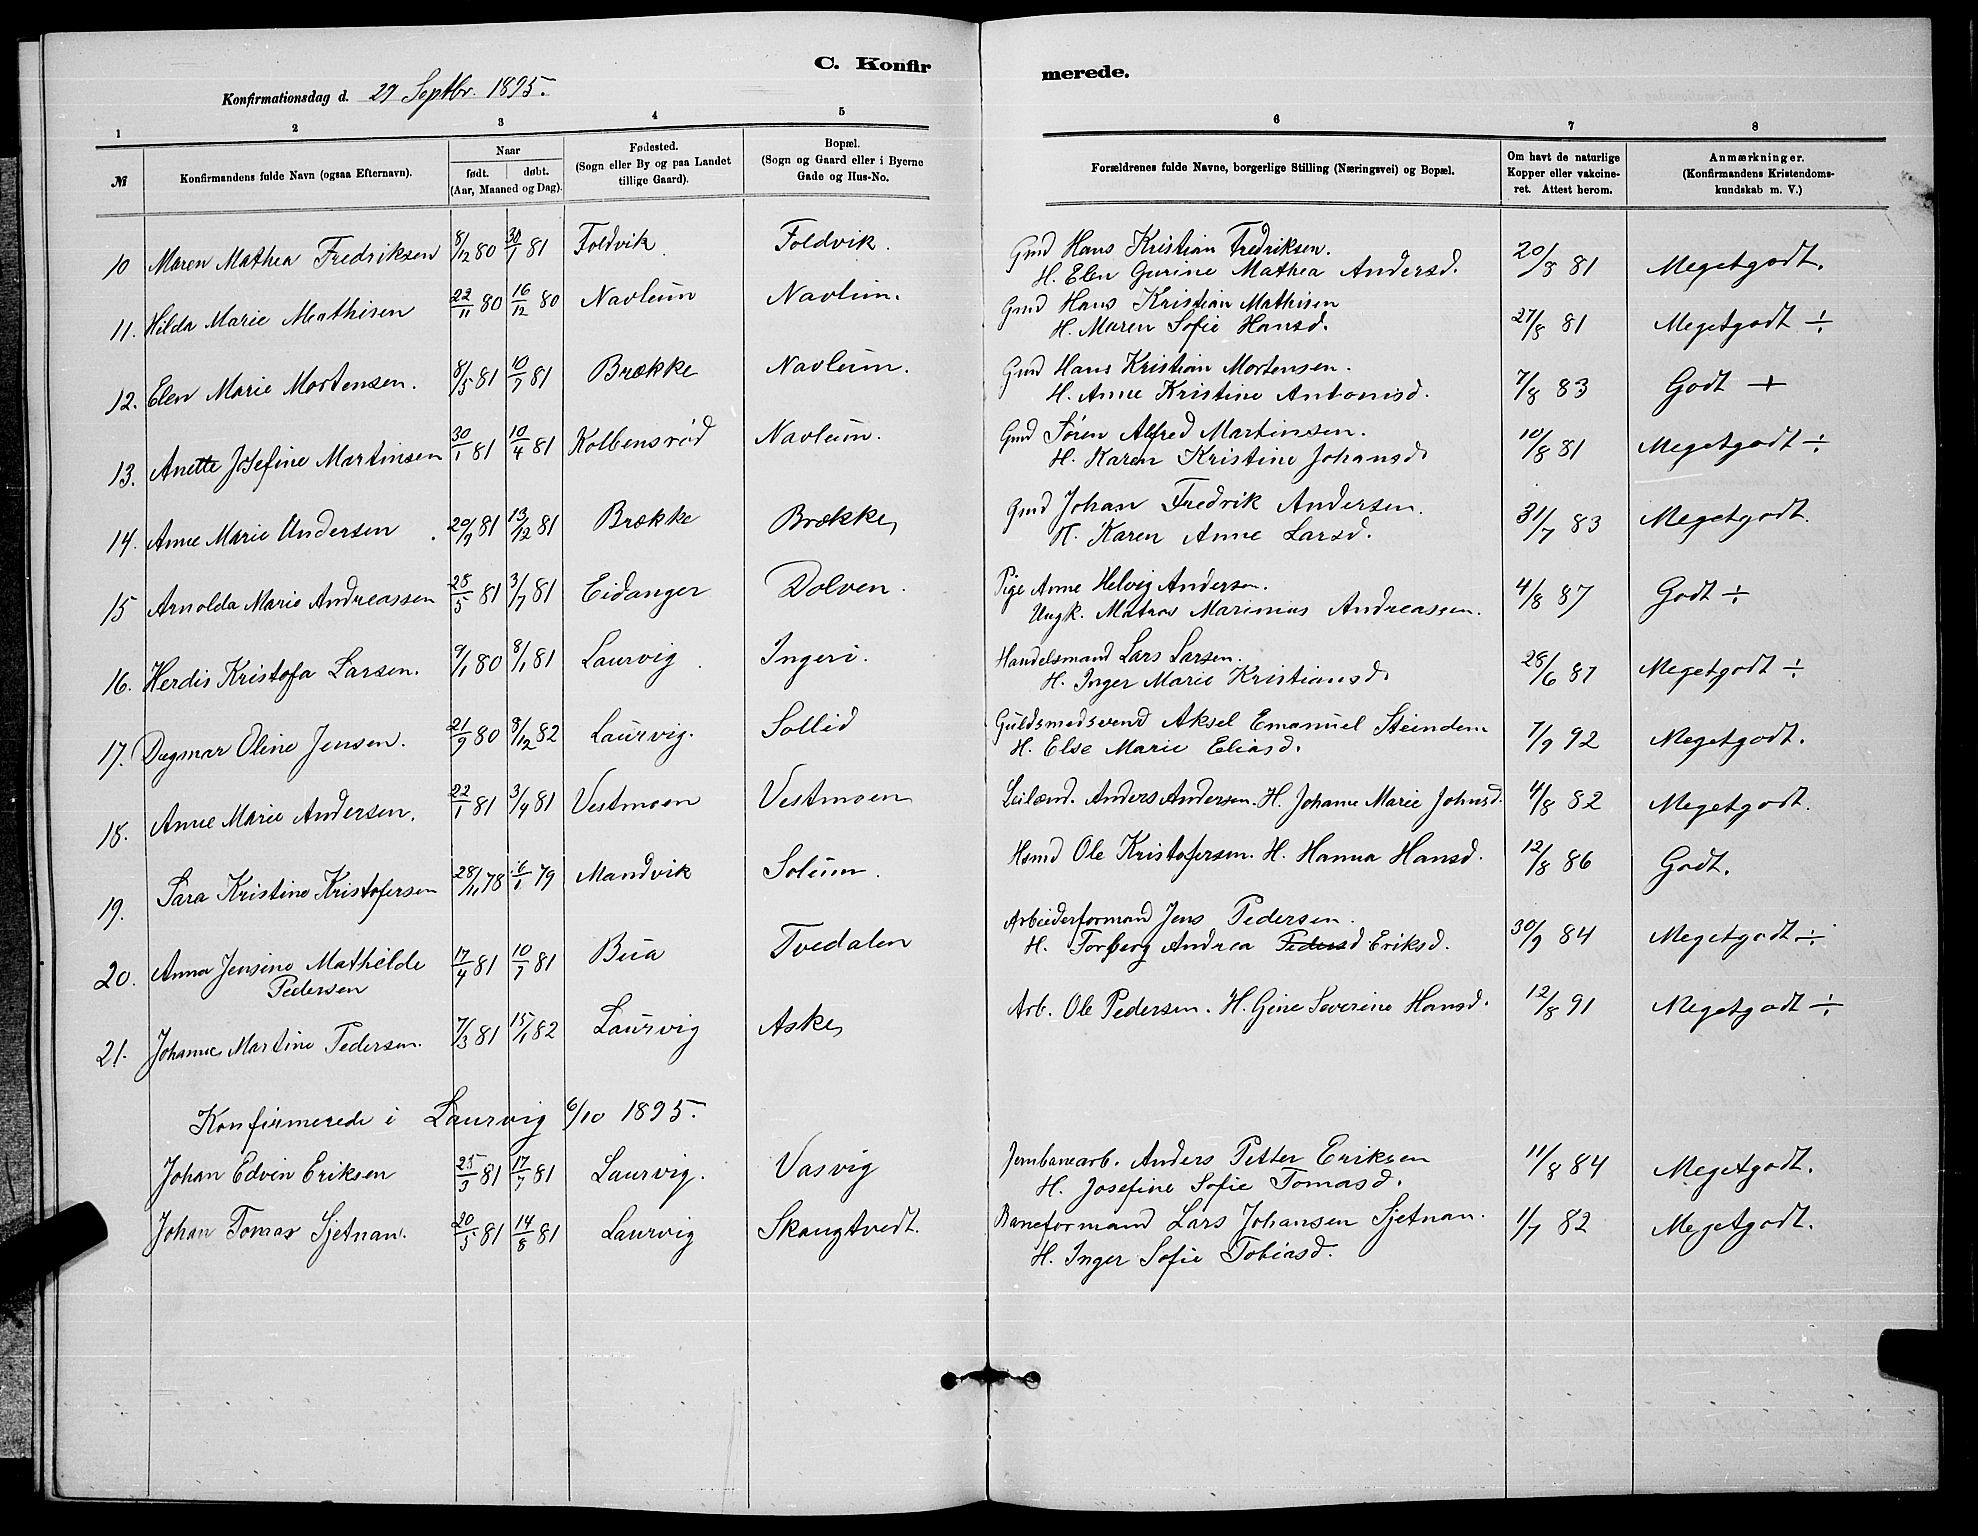 C. Konfirmerede.
Konfirmationsdag d. 29 Septbr. 1895.
1 2 3 4 5 6 7 8
№ Konfirmandens fulde Navn (ogsaa Efternavn). Naar født. døbt. (Aar, Maaned og Dag). Fødested. (Sogn eller By og paa Landet tillige Gaard). Bopæl. (Sogn og Gaard eller i Byerne Gade og Hus-No. Forældrenes fulde Navne, borgerlige Stilling (Næringsvei) og Bopæl. Om havt de naturlige Kopper eller vakcineret. Attest herom. Anmærkninger. (Konfirmandens Kristendomskundskab m. V.)
10 Maren Mathea Fredriksen 8/12 80 30/1 81 Foldvik Foldvik. Gmd Hans Kristian Fredriksen. 20/8 81 Megetgodt.
H. Elen Gurine Mathea Andersd.
11. Hilda Marie Mathisen 22/11 80 16/12 80 Navlum Navlum. Gmd Hans Kristian Mathisen 27/8 81 Megetgodt ÷
H. Maren Sofie Hansd.
12. Elen Marie Mortensen. 8/5 81 10/7 81 Brække Navlum. Gmd Hans Kristian Mortensen. 7/8 83 Godt +
H. Anne Kristine Antonisd.
13. Anette Josefine Martinsen 30/1 81 10/4 81 Kolbensrød Navlum. Gmd Søren Alfred Martinsen. 10/8 81 Megetgodt ÷
H. Karen Kristine Johansd.
14. Anne Marie Andersen 20/9 81 13/12 81 Brække Brække Gmd Johan Fredrik Andersen. 31/7 83 Megetgodt.
H. Karen Anne Larsd.
15 Arnolda Marie Andreassen 28/5 81 3/7 81 Eidanger Dolven. Pige Anne Helvig Andersen. 4/8 87 Godt ÷
Ungk. Matros Marinius Andreassen.
16. Herdis Kristofa Larsen. 9/1 80 8/1 81 Laurvig Ingeri. Handelsmand Lars Larsen. 28/6 87 Megetgodt ÷
H. Inger Marie Kristiansd.
17. Dagmar Oline Jensen. 21/9 80 8/12 82 Laurvig. Sollid Guldsmedsvend Aksel Emanuel 7/9 92 Megetgodt.
H. Else Marie Eliasd.
18. Anne Marie Andersen. 22/1 81 3/4 81 Vestmoen Vestmoen Leilænd. Anders Andersen. H. Johanne Marie Johnsd. 4/8 82 Megetgodt.
19. Sara Kristine Kristofersen 28/11 78 6/1 79 Mandvik Solum. Hsmd Ole Kristofersen. H. Hanna Hansd. 12/8 86 Godt.
20. Anna Jensine Mathilde 17/4 81 10/7 81 Bua Tvedalen Arbeiderformand Jens Pedersen. 30/9 84 Megetgodt ÷
Pedersen H. Torberg Andrea Pedersd Eriksd.
21. Johanne Martine Pedersen. 7/3 81 15/1 82 Laurvig Aske Arb. Ole Pedersen. H. Gine Severine Hansd. 12/8 91 Megetgodt ÷
Konfirmerede i Laurvig 6/10 1895.
Johan Edvin Eriksen 25/3 81 17/7 81 Laurvig. Vasvig Jernbanearb. Anders Petter Eriksen 11/8 84 Megetgodt.
H. Josefine Sofie Tomasd.
Johan Tomas Sjetnan. 20/5 81 14/8 81 Laurvig Skaugtvedt. Baneformand Lars Johansen Sjetnan. 1/7 82 Megetgodt.
H. Inger Sofie Tobiasd.